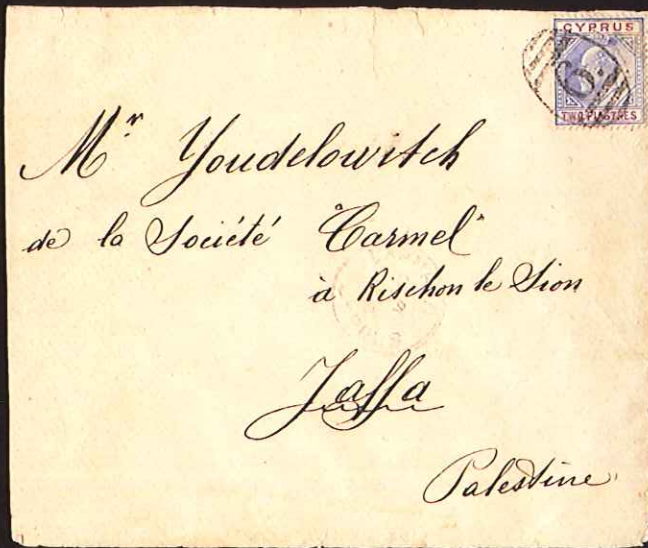 CYPRUS
TWO PIASTRES
Mr Youdelowitch
de la Société "Carmel"
à Rischon le Sion
Jaffa
Palestine